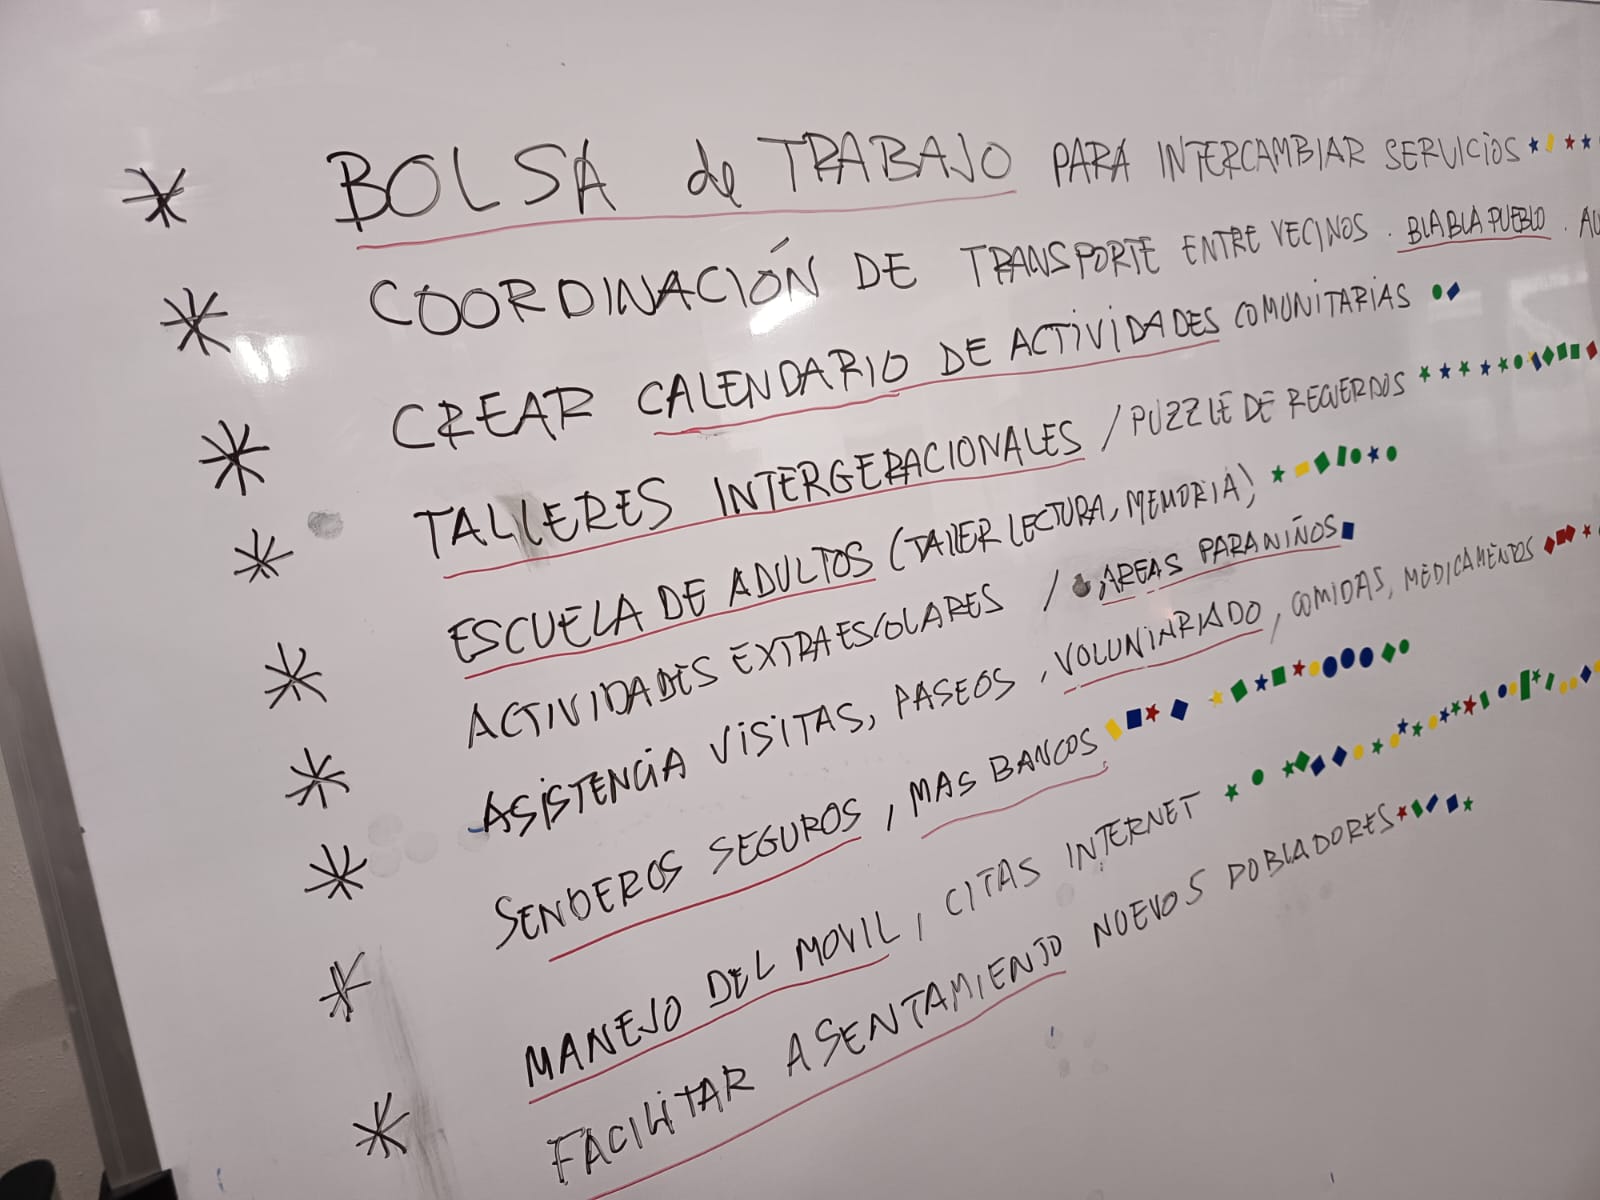 * BOLSA de TRABAJO PARA INTERCAMBIAR SERVICIOS
* COORDINACIÓN DE TRANSPORTE ENTRE VECINOS . BLABLAPUEBLO .
* CREAR CALENDARIO DE ACTIVIDADES COMUNITARIAS
* TALLERES INTERGERACIONALES / PUZZLE DE RECUERDOS
* ESCUELA DE ADULTOS (TALLER LECTURA, MEMORIA)
* ACTIVIDADES EXTRAESCOLARES / AREAS PARA NIÑOS
* ASISTENCIA VISITAS, PASEOS, VOLUNINRIADO, COMIDAS, MEDICAMENTOS
* SENDEROS SEGUROS, MAS BANCOS
* MANEJO DEL MOVIL, CITAS INTERNET
* FACILITAR ASENTAMIENTO NUEVOS POBLADORES